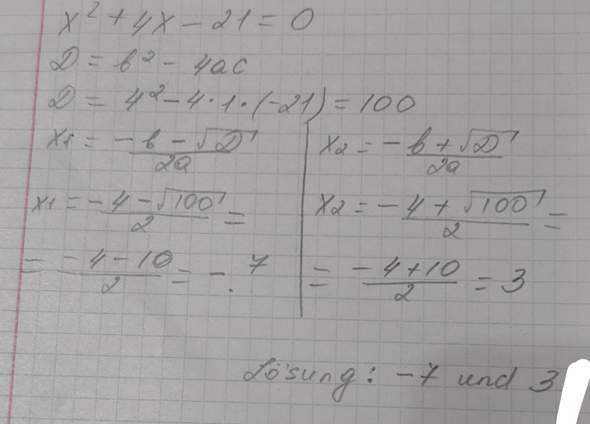 x² + 4x - 21 = 0
D = b² - 4ac
D = 4² - 4 · 1 · (-21) = 100
x1 = (-b - √D) / 2a
x1 = (-4 - √100) / 2 =
= (-4 - 10) / 2 = -7
x2 = (-b + √D) / 2a
x2 = (-4 + √100) / 2 =
= (-4 + 10) / 2 = 3
Lösung: -7 und 3